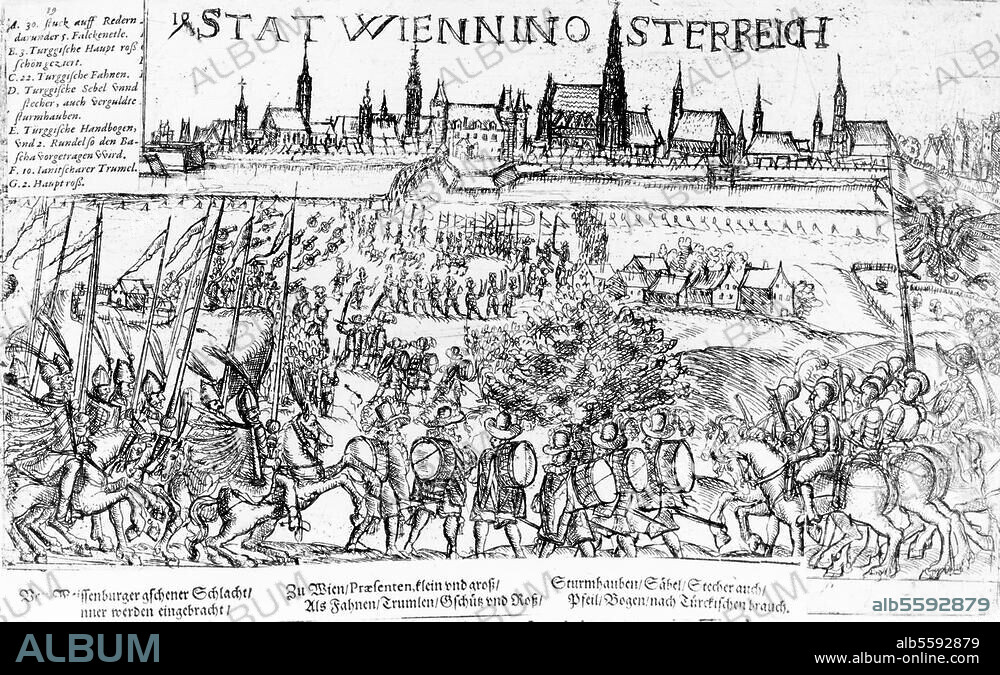 19
A. 30. stuck auff Redern
darunder 5. Falckenetle.
B. 3. Turggische Haupt roß
schön geziert.
C. 22. Turggische Fahnen.
D. Turggische Sebel vnnd
stecher, auch verguldte
sturmhauben.
E. Turggische Handbogen,
vnd 2. Rundel so den Ba-
scha vorgetragen wurd.
F. 10. Ianitscharer Trumel.
G. 2. Haupt roß.
18 STAT WIENN IN O STERREICH
Weissenburger gschener Schlacht/
nner werden eingebracht/
Zu Wien/Præsenten, klein vnd groß/
Als Fahnen/Trumlen/Gschütz vnd Roß/
Sturmhauben/Säbel/Stecher auch/
Pfeil/Bogen/nach Türckischen brauch.
ALBUM
alb5592879
ALBUM
alb5592879
www.album-online.com